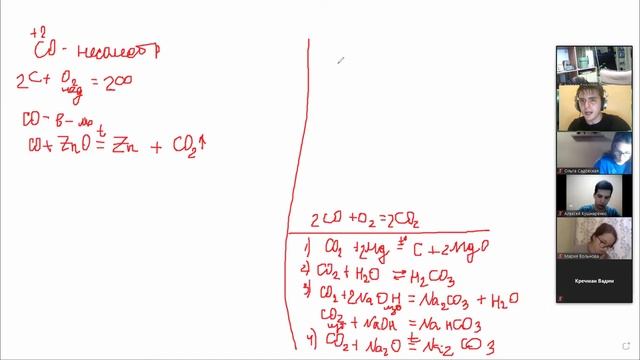 +2
CO - несолеобр
2C + O2 = 2CO
нед
CO - в-ль
CO + ZnO = Zn + CO2↑
t
2CO + O2 = 2CO2
1) CO2 + 2Mg = C + 2MgO
t°
2) CO2 + H2O ⇌ H2CO3
3) CO2 + 2NaOH = Na2CO3 + H2O
изб
CO2 + NaOH = NaHCO3
изб
4) CO2 + Na2O = Na2CO3
t
Ольга Садовская
Алексей Кушнаренко
Мария Вольнова
Кречман Вадим